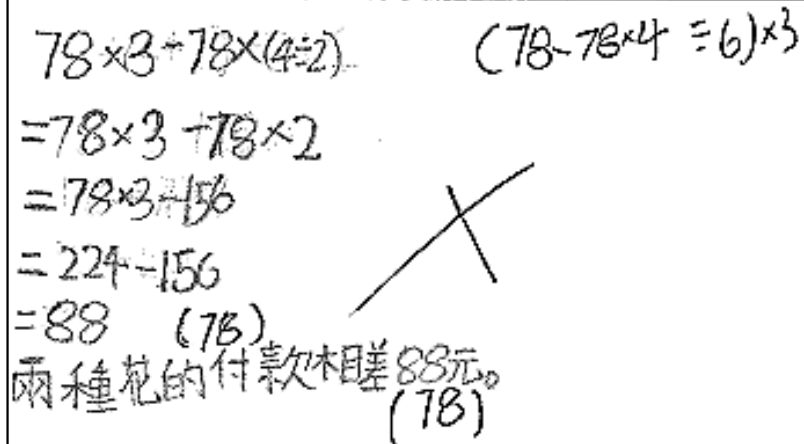 78×3-78×(4÷2)
(78-78×4÷6)×3
=78×3-78×2
=78×3-156
=224-156
=88 (78)
兩種花的付款相差88元。
(78)